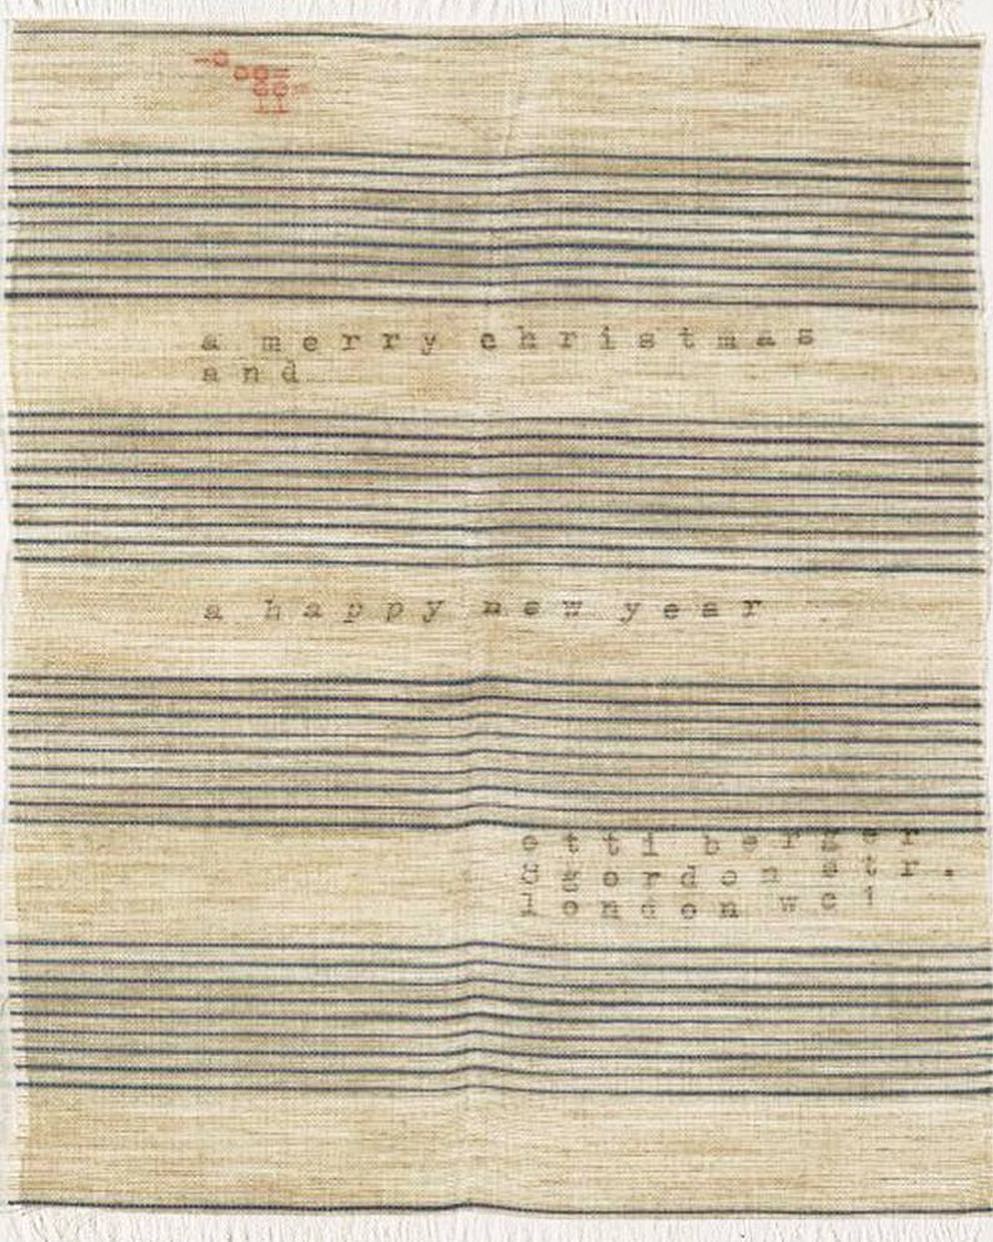 a merry christmas
and
a happy new year
otti berger
8 gordon str.
london wc1